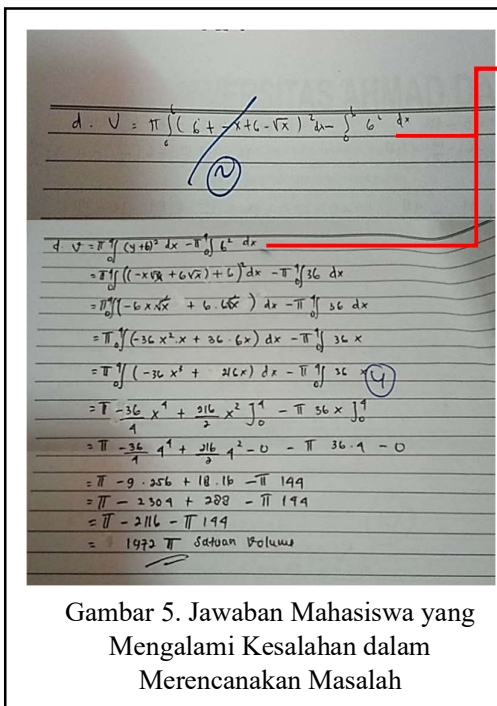 d. V = π ∫₆⁶ ( 6 + -x+6-√x )² dx - ∫₀⁶ 6² dx
N
d. V = π ∫₀⁴ (y+6)² dx - π ∫₀⁴ 6² dx
= π ∫₀⁴ ((-x√x + 6√x) + 6)² dx - π ∫₀⁴ 36 dx
= π ∫₀⁴ (-6x√x + 6.6√x ) dx - π ∫₀⁴ 36 dx
= π ∫₀⁴ (-36 x².x + 36.6x) dx - π ∫₀⁴ 36 x
= π ∫₀⁴ (-36 x³ + 216x) dx - π ∫₀⁴ 36 x
4
= π -36/4 x⁴ + 216/2 x² ]₀⁴ - π 36x ]₀⁴
= π -36/4 4⁴ + 216/2 4² - 0 - π 36.4 - 0
= π -9.256 + 18.16 - π 144
= π - 2304 + 288 - π 144
= π - 2116 - π 144
= 1972 π Satuan Volume
Gambar 5. Jawaban Mahasiswa yang
Mengalami Kesalahan dalam
Merencanakan Masalah